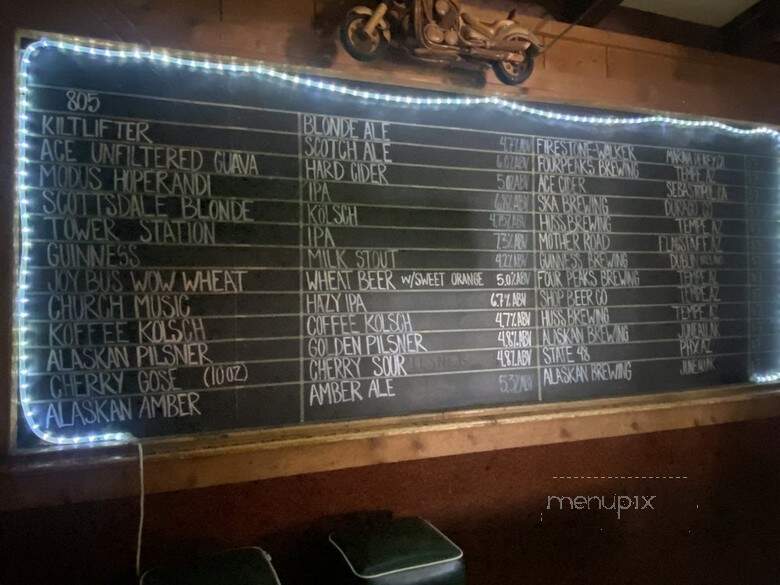 805 BLONDE ALE 4.7% ABV FIRESTONE-WALKER
KILTLIFTER SCOTCH ALE 6.0% ABV FOURPEAKS BREWING TEMPE AZ
ACE UNFILTERED GUAVA HARD CIDER 5.0% ABV ACE CIDER
MODUS HOPERANDI IPA SKA BREWING
SCOTTSDALE BLONDE KÖLSCH HUSS BREWING TEMPE AZ
TOWER STATION IPA 7.3% ABV MOTHER ROAD FLAGSTAFF AZ
GUINNESS MILK STOUT 4.2% ABV GUINNESS BREWING DUBLIN
JOY BUS WOW WHEAT WHEAT BEER W/SWEET ORANGE 5.0% ABV FOUR PEAKS BREWING TEMPE AZ
CHURCH MUSIC HAZY IPA 6.7% ABV SHIP BEER CO
KOFFEE KOLSCH COFFEE KOLSCH 4.7% ABV HUSS BREWING TEMPE AZ
ALASKAN PILSNER GOLDEN PILSNER 4.8% ABV ALASKAN BREWING JUNEAU AK
CHERRY GOSE (10OZ) CHERRY SOUR 4.8% ABV STATE 48 PHX AZ
ALASKAN AMBER AMBER ALE 5.3% ABV ALASKAN BREWING JUNEAU AK
menupix